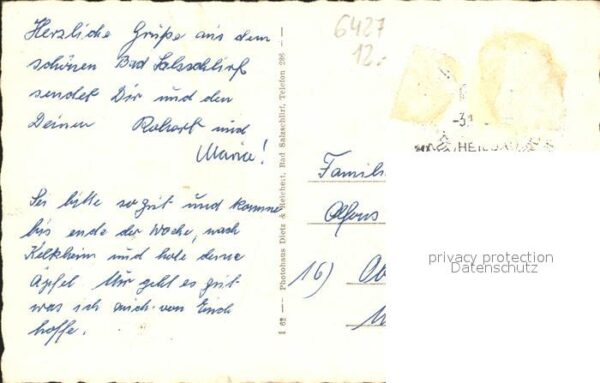 Herzliche Grüße aus dem
schönen Bad Salzschlirf
sendet Dir und den
Deinen Robert und
Maria!
Sei bitte so gut und komme
bis ende der Woche, nach
Kelkheim und hole deine
Äpfel. Mir geht es gut
was ich auch von Euch
hoffe.
I 62 — Photohaus Dietz & Reichert, Bad Salzschlirf, Telefon 286 —
6427
12.-
-3.
Famili
Alfons
16)
privacy protection
Datenschutz